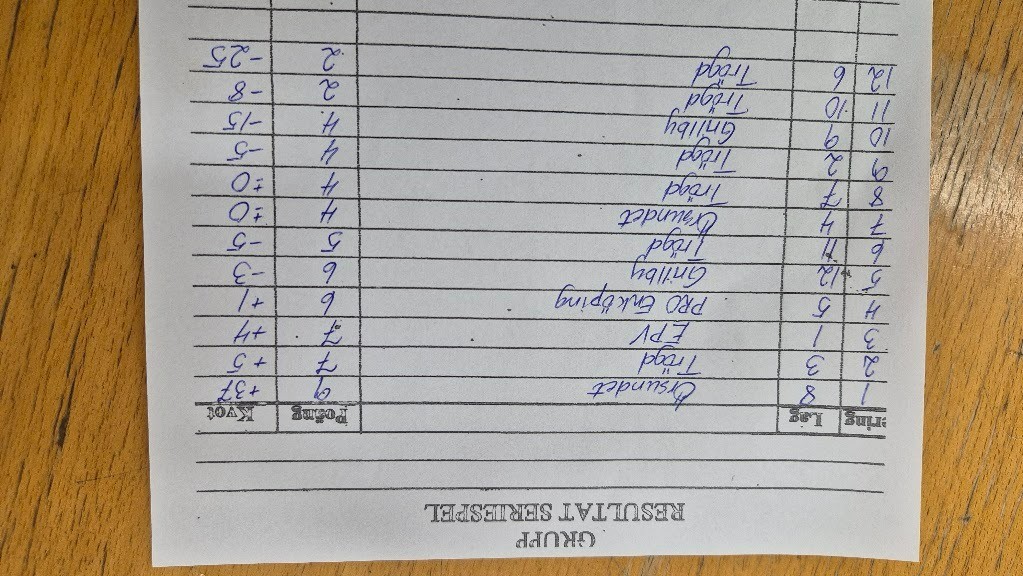 GRUPP
RESULTAT SERIESPEL
ering Lag Poäng Kvot
1 8 Örsundet 9 +37
2 3 Trögd 7 +5
3 1 EPV 7 +4
4 5 PRO Enköping 6 +1
5 12 Grillby 6 -3
6 11 Trögd 5 -5
7 4 Örsundet 4 ±0
8 7 Trögd 4 ±0
9 2 Trögd 4 -5
10 9 Grillby 4 -15
11 10 Trögd 2 -8
12 6 Trögd 2 -25